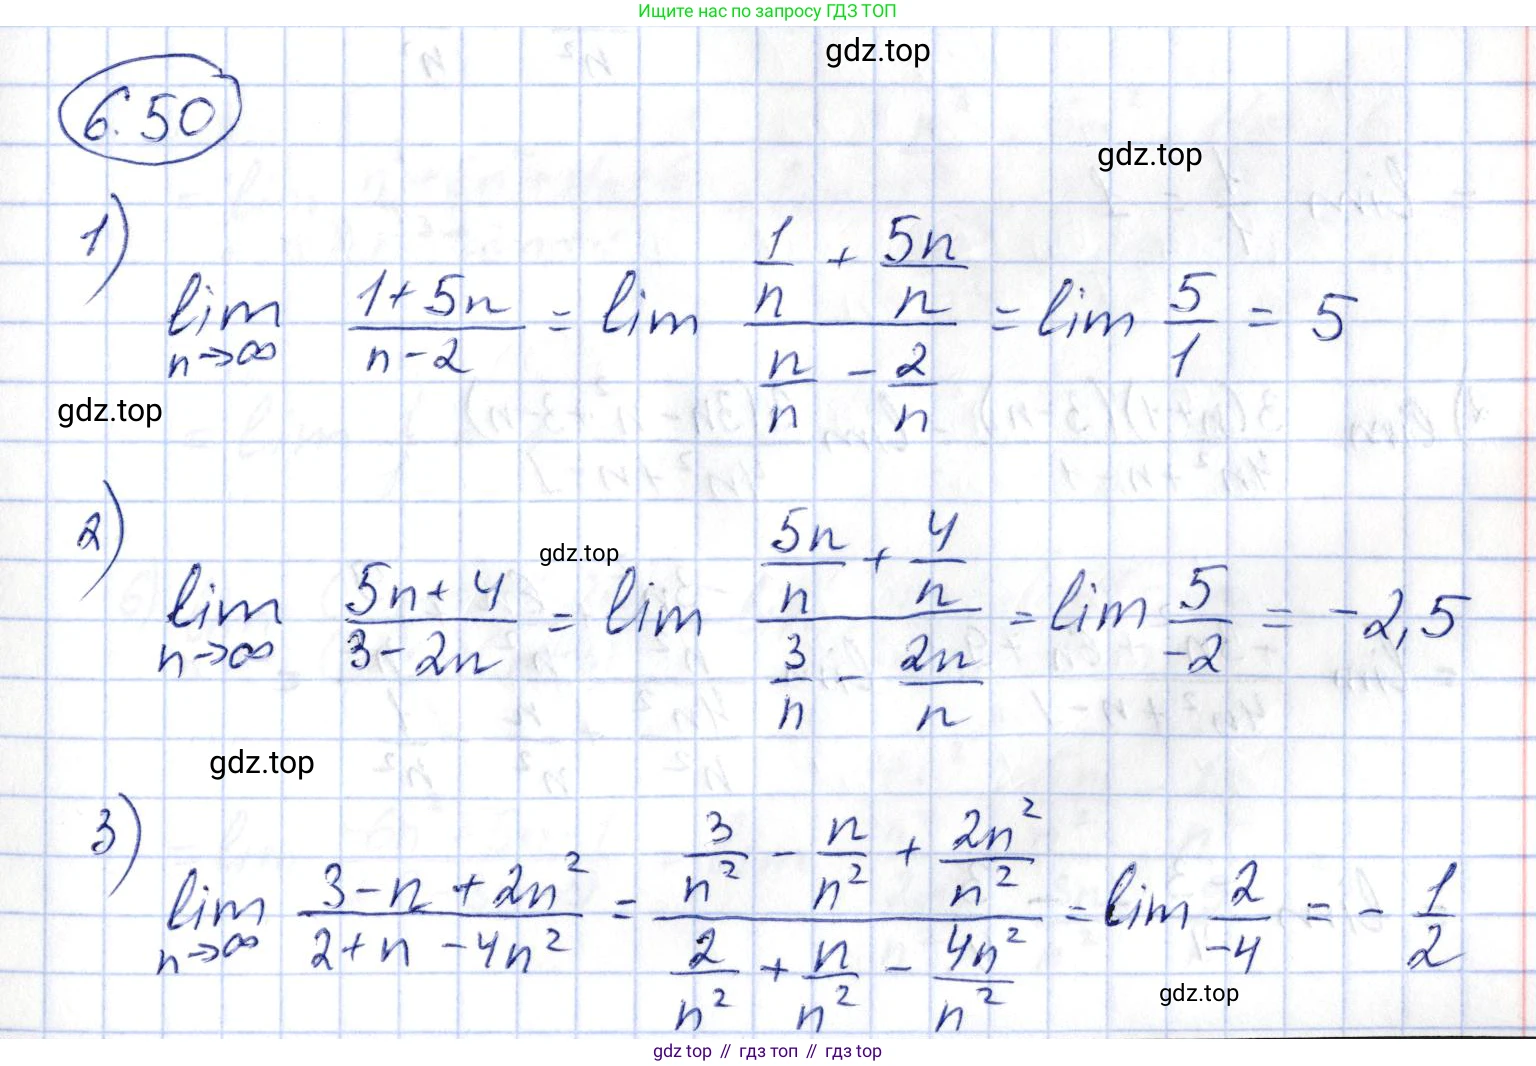 Ищите нас по запросу ГДЗ ТОП
gdz.top
6.50
gdz.top
1) lim n→∞ (1+5n)/(n-2) = lim (1/n + 5n/n)/(n/n - 2/n) = lim 5/1 = 5
gdz.top
2) lim n→∞ (5n+4)/(3-2n) = lim (5n/n + 4/n)/(3/n - 2n/n) = lim 5/-2 = -2,5
gdz.top
gdz.top
3) lim n→∞ (3-n+2n²)/(2+n-4n²) = (3/n² - n/n² + 2n²/n²)/(2/n² + n/n² - 4n²/n²) = lim 2/-4 = - 1/2
gdz.top
gdz top // гдз топ // gdz top